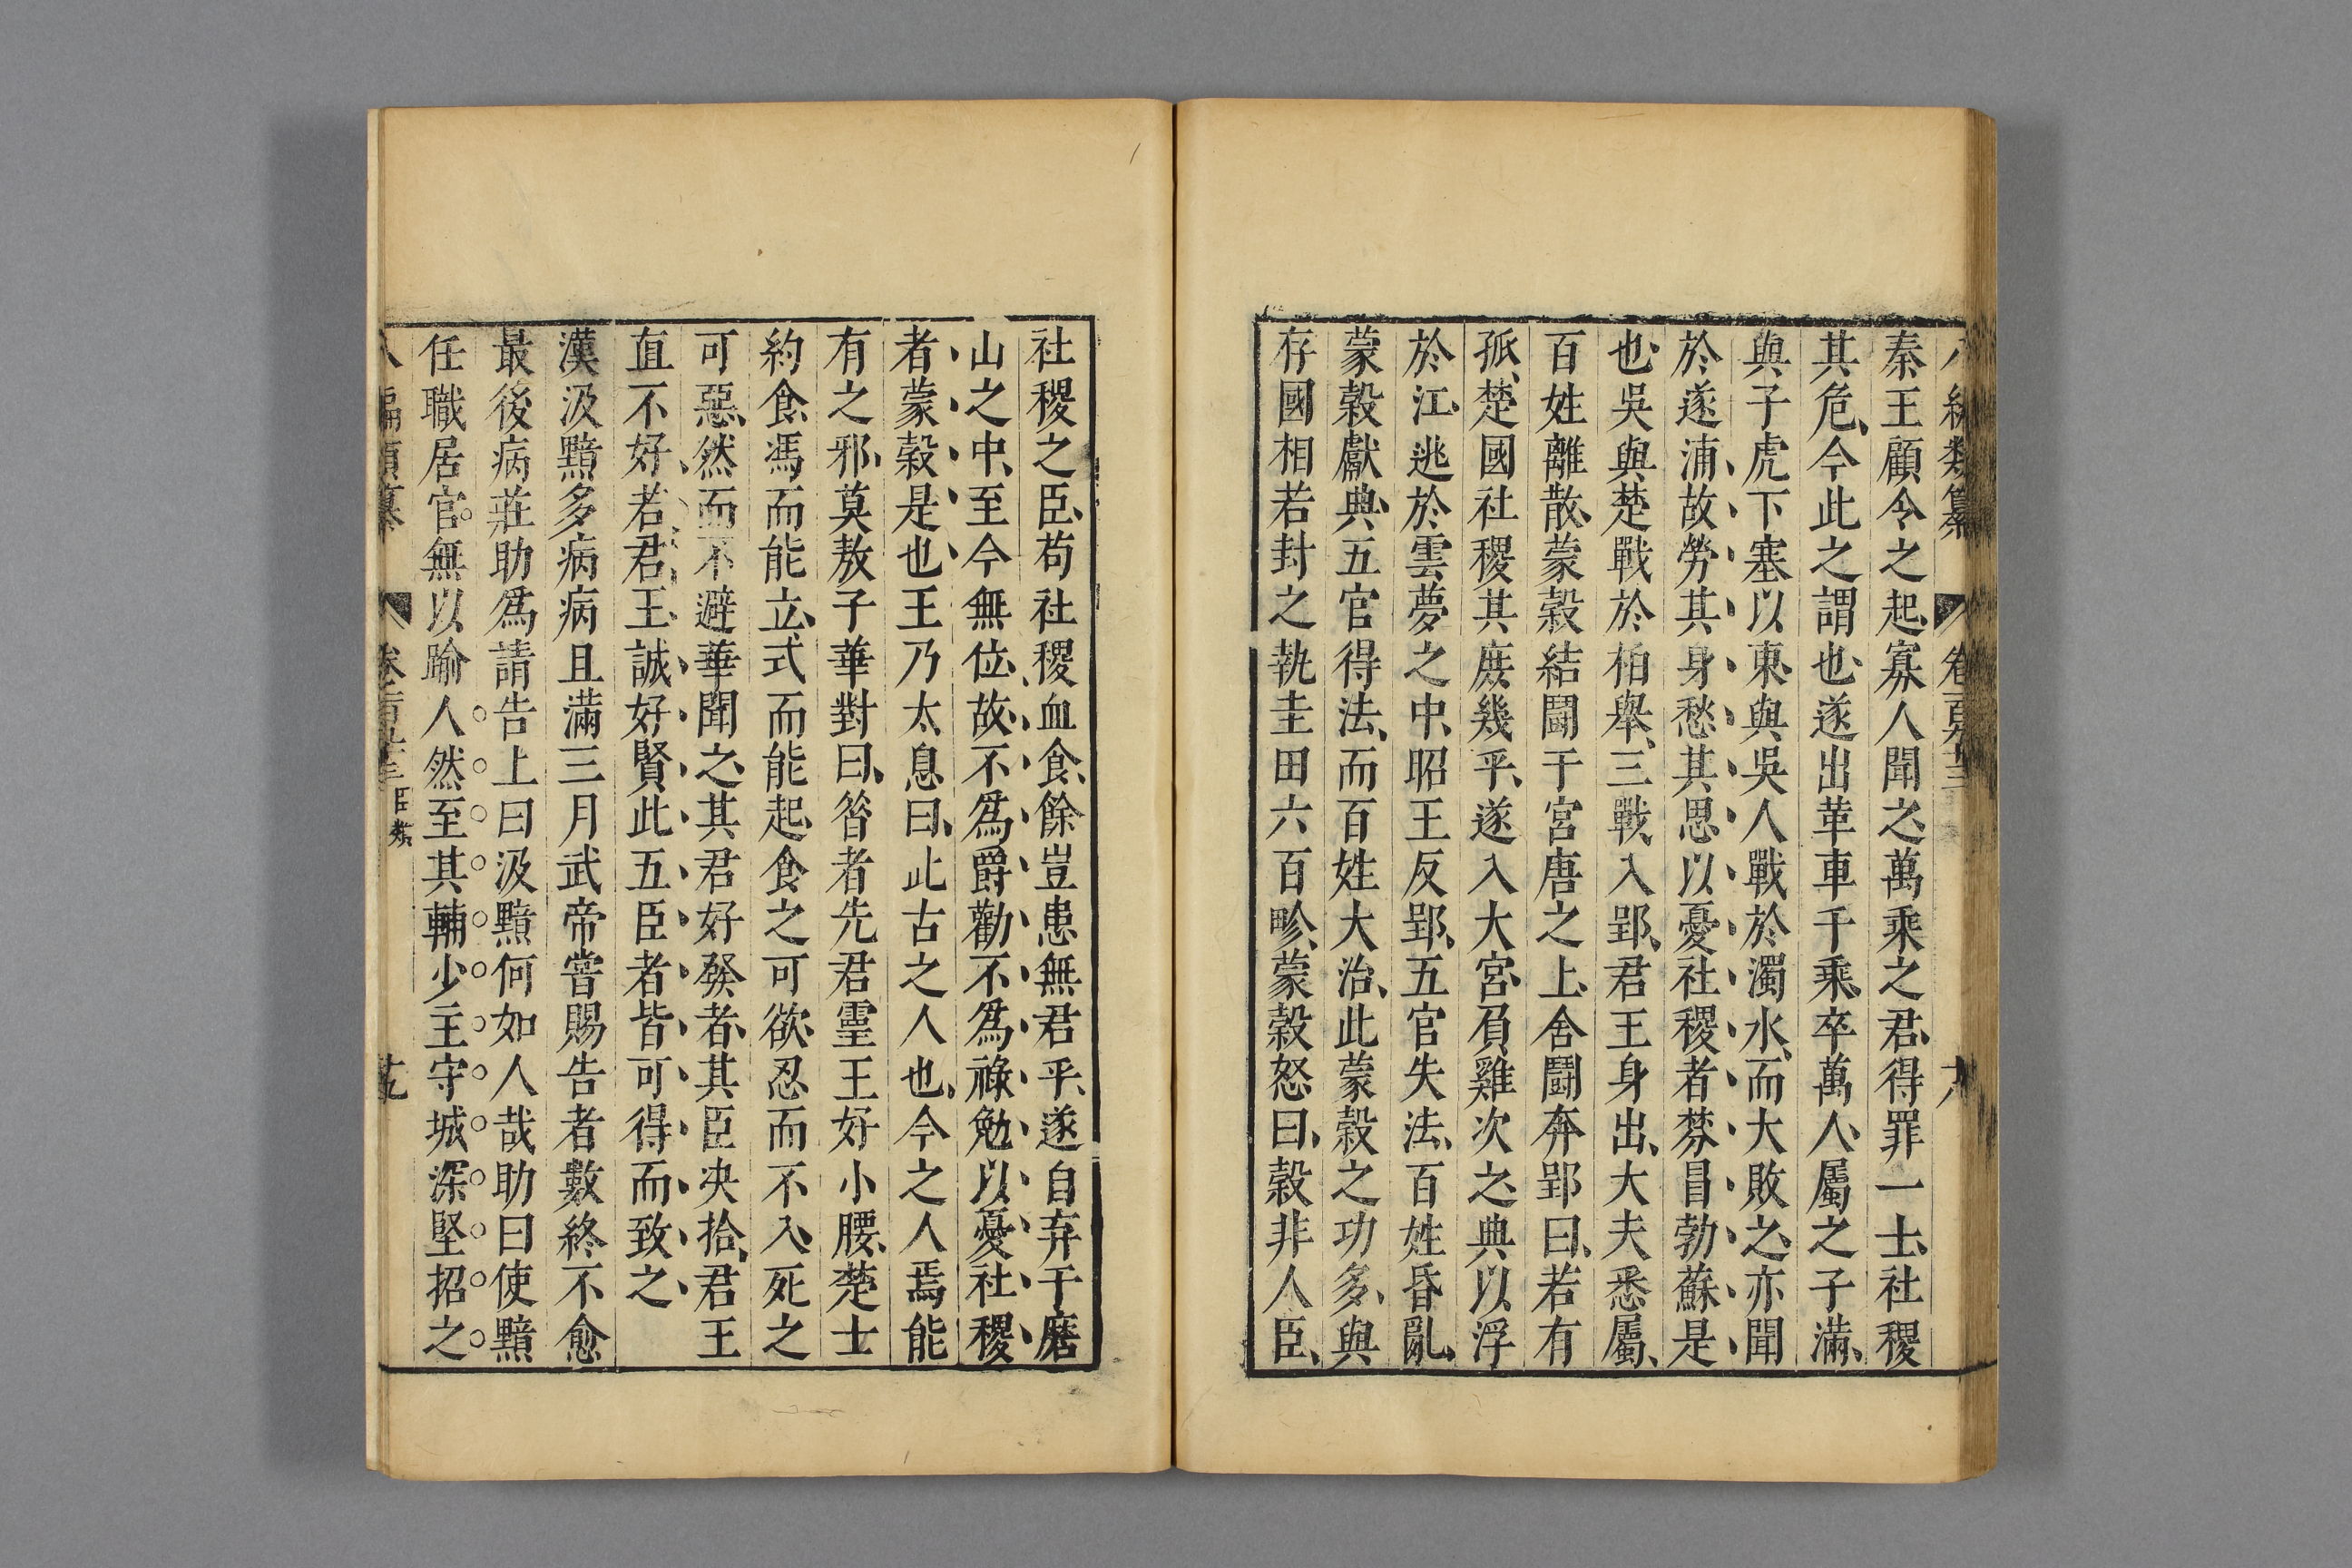 秦王顧令之起寡人聞之萬乘之君得罪一士社稷
其危今此之謂也遂出革車千乘卒萬人屬之子滿
與子虎下塞以東與吳人戰於濁水而大敗之亦聞
於遂浦故勞其身愁其思以憂社稷者棼冒勃蘇是
也吳與楚戰於柏舉三戰入郢君王身出大夫悉屬
百姓離散蒙穀結鬪于宮唐之上舍鬪奔郢曰若有
孤楚國社稷其庶幾乎遂入大宮負雞次之典以浮
於江逃於雲夢之中昭王反郢五官失法百姓昏亂
蒙穀獻典五官得法而百姓大治此蒙穀之功多與
存國相若封之執圭田六百畛蒙穀怒曰穀非人臣
社稷之臣苟社稷血食餘豈患無君乎遂自弃于磨
山之中至今無位故不為爵勸不為祿勉以憂社稷
者蒙穀是也王乃太息曰此古之人也今之人焉能
有之邪莫敖子華對曰昝者先君靈王好小腰楚士
約食馮而能立式而能起食之可欲忍而不入死之
可惡然而不避華聞之其君好發者其臣决拾君王
直不好若君王誠好賢此五臣者皆可得而致之
漢汲黯多病病且滿三月武帝嘗賜告者數終不愈
最後病莊助爲請告上曰汲黯何如人哉助曰使黯
任職居官無以踰人然至其輔少主守城深堅招之